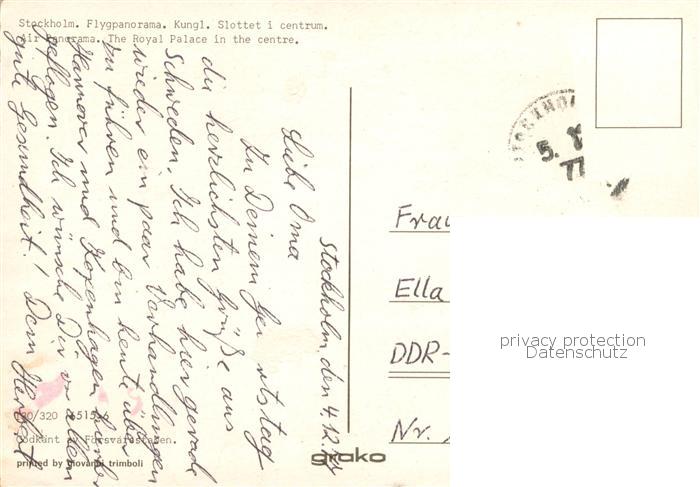 Stockholm. Flygpanorama. Kungl. Slottet i centrum.
Air Panorama. The Royal Palace in the centre.
Stockholm, den 4.12.77
Liebe Oma
Zu Deinem Geburtstag
die herzlichsten Grüße aus
Schweden. Ich habe hier gerade
wieder ein paar Verhandlungen
zu führen und bin heute über
Hannover und Kopenhagen hierher
geflogen. Ich wünsche Dir vor allem
gute Gesundheit! Dein Herbert
STOCKHOL
5.
77
Frau
Ella
DDR-
Nr.
privacy protection
Datenschutz
Godkänt av Försvarsstaben.
printed by giovanni trimboli
grako